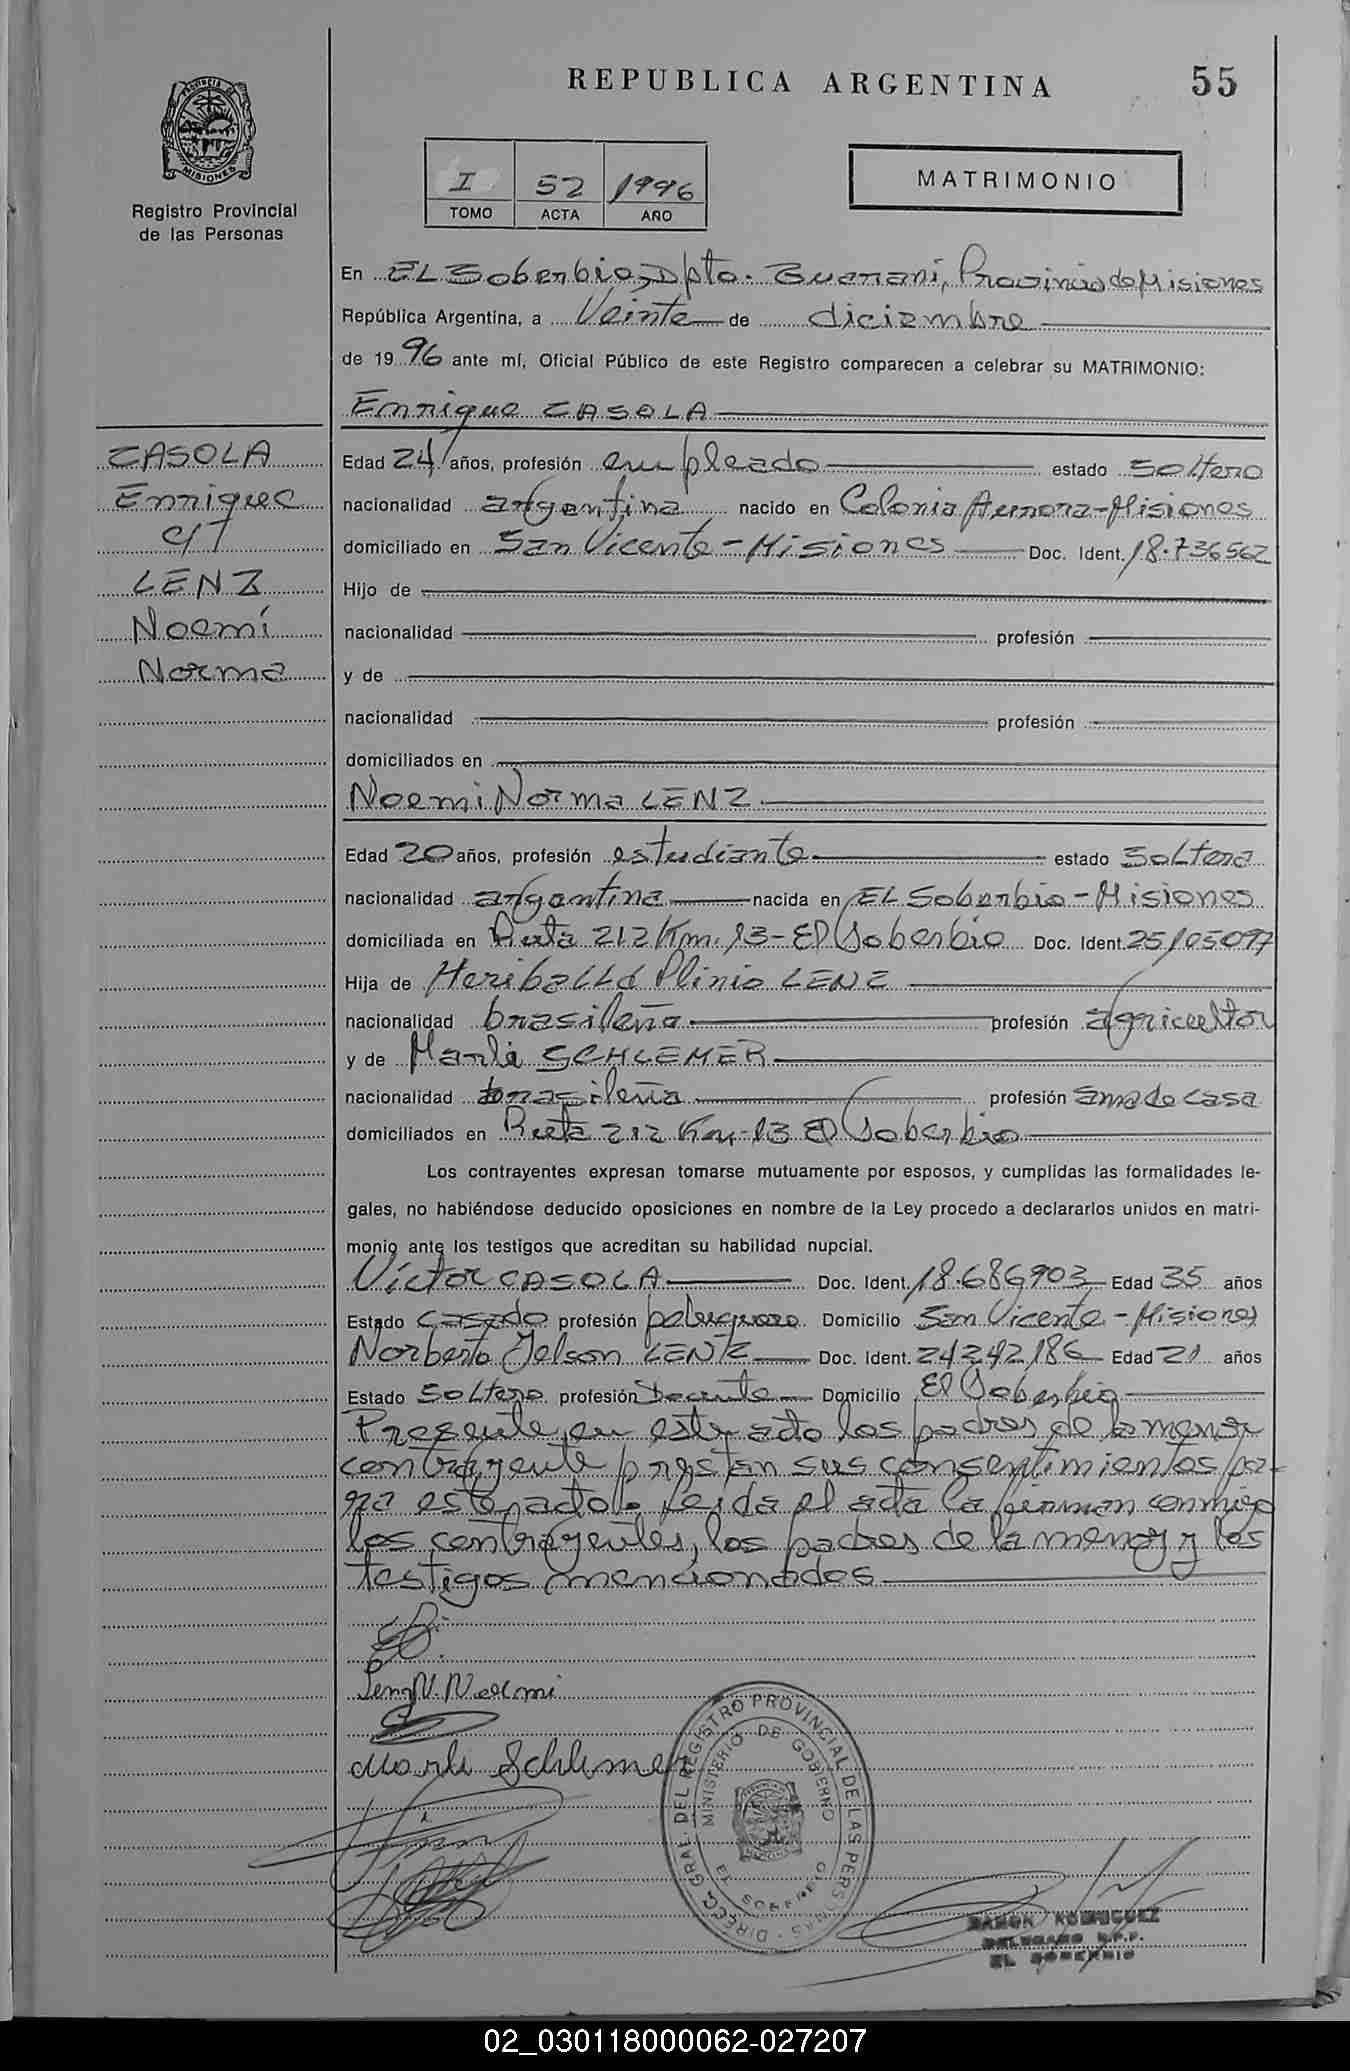 REPUBLICA ARGENTINA
55
PROVINCIA DE
MISIONES
Registro Provincial
de las Personas
I 52 1996
TOMO ACTA AÑO
MATRIMONIO
En EL Soberbio, Dpto. Guarani, Provincia de Misiones
República Argentina, a Veinte de diciembre
de 1996 ante mí, Oficial Público de este Registro comparecen a celebrar su MATRIMONIO:
Enrique CASOLA
CASOLA
Enrique
c/
LENZ
Noemí
Norma
Edad 24 años, profesión empleado estado Soltero
nacionalidad argentina nacido en Colonia Aurora-Misiones
domiciliado en San Vicente - Misiones Doc. Ident. 18.736562
Hijo de
nacionalidad profesión
y de
nacionalidad profesión
domiciliados en
Noemi Norma LENZ
Edad 20 años, profesión estudiante estado Soltera
nacionalidad argentina nacida en EL Soberbio - Misiones
domiciliada en Ruta 212 Km. 13 - El Soberbio Doc. Ident. 25105097
Hija de Plinio LENZ
nacionalidad brasileña profesión agricultor
y de Marli SCHLEMER
nacionalidad brasileña profesión ama de casa
domiciliados en Ruta 212 Km-13 El Soberbio
Los contrayentes expresan tomarse mutuamente por esposos, y cumplidas las formalidades le-
gales, no habiéndose deducido oposiciones en nombre de la Ley procedo a declararlos unidos en matri-
monio ante los testigos que acreditan su habilidad nupcial.
Víctor CASOLA Doc. Ident. 18.686903 Edad 35 años
Estado casado profesión peluquero Domicilio San Vicente - Misiones
Norberto Jelson LENZ Doc. Ident. 24242186 Edad 21 años
Estado Soltero profesión Docente Domicilio El Soberbio
Presente en este acto los padres de la menor
contrayente prestan sus consentimientos pa-
ra este acto. Leida el acta la firman conmigo
los contrayentes, los padres de la menor y los
testigos mencionados
Lenz N. Noemi
Marli Schlemer
DIRECC. GRAL. DEL REGISTRO PROVINCIAL DE LAS PERSONAS
MINISTERIO DE GOBIERNO
EL SOBERBIO
RAMON RODRIGUEZ
DELEGADO R.P.P.
EL SOBERBIO
02_030118000062-027207